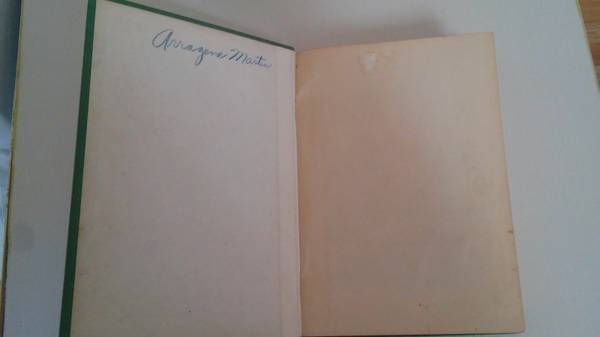 Arragene Martin